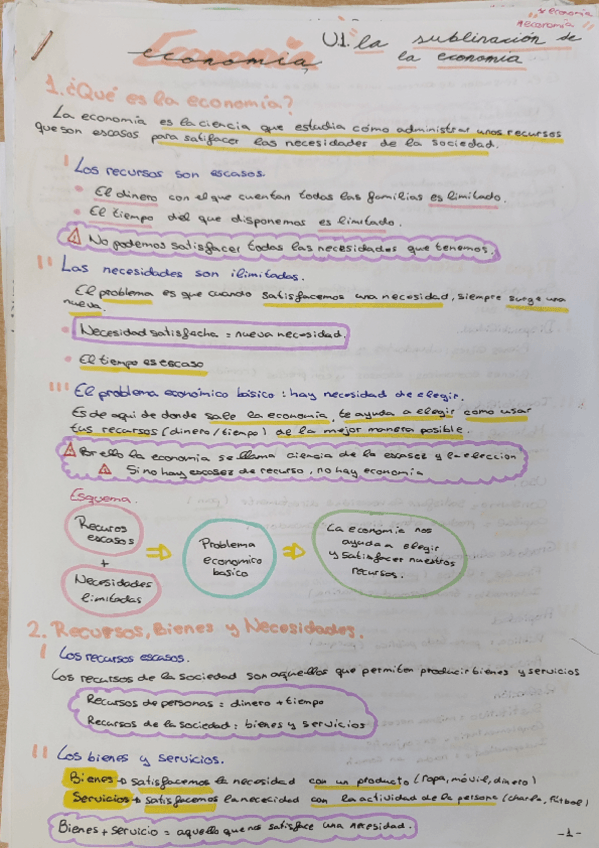 * economía
* economía
Economía U.1. la sublinación de
economía, la economía
1. ¿Qué es la economía?
La economía es la ciencia que estudia cómo administrar unos recursos
que son escasos para satifacer las necesidades de la sociedad.
I Los recursos son escasos.
• El dinero con el que cuentan todas las familias es limitado.
• El tiempo del que disponemos es limitado.
⚠ No podemos satisfacer todas las necesidades que tenemos.
II Las necesidades son ilimitadas.
El problema es que cuando satisfacemos una necesidad, siempre surge una
nueva.
• Necesidad satisfecha = nueva necesidad.
• El tiempo es escaso
III El problema económico básico: hay necesidad de elegir.
Es de aqui de donde sale la economía, te ayuda a elegir como usar
tus recursos (dinero/tiempo) de la mejor manera posible.
⚠ Por ello la economia se llama ciencia de la escasez y la elección
⚠ Si no hay escasez de recurso, no hay economía
Esquema.
Recuros
escasos
+
Necesidades
limitadas
⇒
Problema
economico
basico
⇒
La economia nos
ayuda a elegir
y satisfacer nuestros
recursos.
2. Recursos, Bienes y Necesidades.
I Los recursos escasos.
Los recursos de la sociedad son aquellos que permiten producir bienes y servicios
Recursos de personas = dinero + tiempo
Recursos de la sociedad: bienes y servicios
II Los bienes y servicios.
Bienes → satisfacemos la necesidad con un producto (ropa, móvil, dinero)
Servicios → satisfacemos la nececidad con la actividad de la persona (charla, fútbol)
Bienes + servicio = aquello que nos satisface una necesidad.
-1-